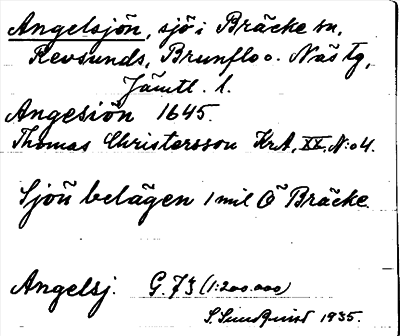 Angelsjön, sjö i Bräcke sn,
Revsunds, Brunflo o. Näs tg,
Jämtl. l.
Angesiön 1645.
Thomas Christersson KrA, XX, N:o 4.
Sjön belägen 1 mil Ö Bräcke
Angelsj. G. 73 (1:200.000)
S. Sundquist 1935.